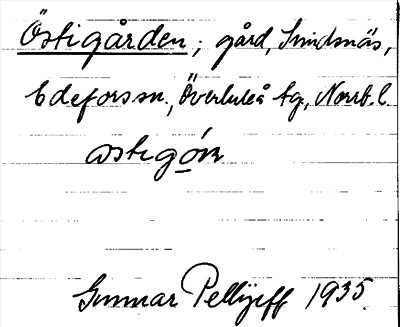 Östigården; gård, Smidsnäs,
Edeforssn., Överluleå tg., Norrb. l.
östigó̱n
Gunnar Pellijeff 1935.